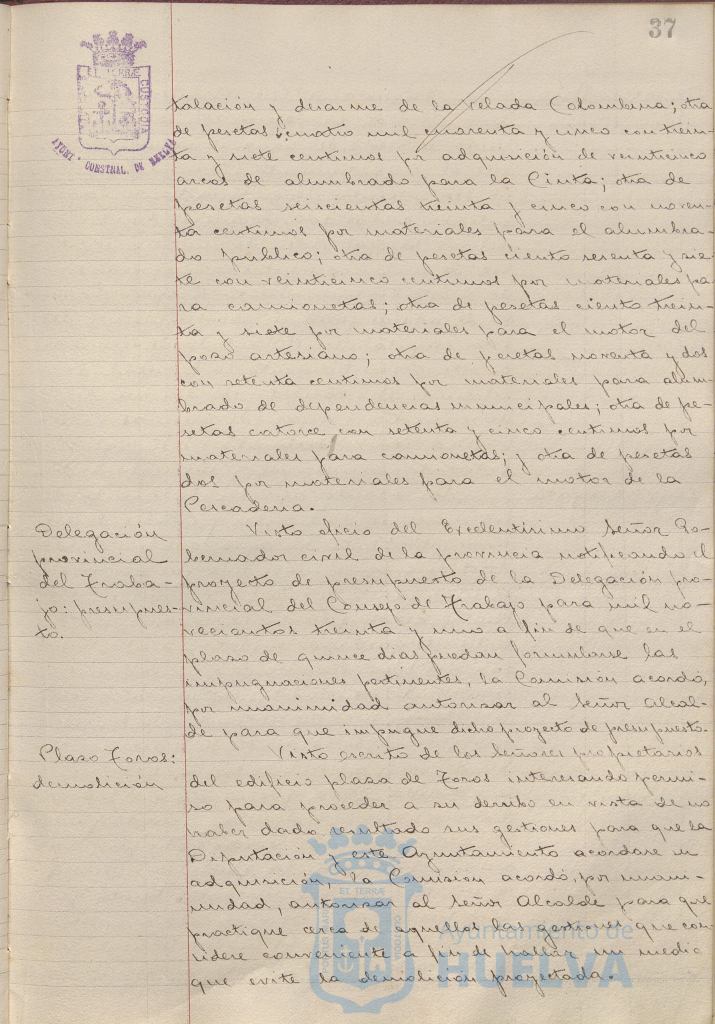 37
EL TERRÆ
CUSTODIA
AYUNT. CONSTNAL. DE HUELVA
talación y desarme de la velada Colombina; otra
de pesetas cuatro mil cuarenta y cinco con trein-
ta y siete centimos por adquisición de veinticinco
arcos de alumbrado para la Cinta; otra de
pesetas seiscientas treinta y cinco con noven-
ta centimos por materiales para el alumbra-
do público; otra de pesetas ciento sesenta y sie-
te con veinticinco centimos por materiales pa-
ra camionetas; otra de pesetas ciento trein-
ta y siete por materiales para el motor del
pozo artesiano; otra de pesetas noventa y dos
con setenta centimos por materiales para alum-
brado de dependencias municipales; otra de pe-
setas catorce con setenta y cinco centimos por
materiales para camionetas; y otra de pesetas
dos por materiales para el motor de la
Pescaderia.
Delegación
provincial
del Traba-
jo: presupues-
to.
Visto oficio del Excelentisimo Señor Go-
bernador civil de la provincia notificando el
proyecto de presupuesto de la Delegación pro-
vincial del Consejo de Trabajo para mil no-
vecientos treinta y uno a fin de que en el
plazo de quince dias puedan formularse las
impugnaciones pertinentes, la Comisión acordó,
por unanimidad autorizar al Señor Alcal-
de para que impugne dicho proyecto de presupuesto.
Plaza Toros:
demolición
Visto escrito de los Señores propietarios
del edificio plaza de Toros interesando permi-
so para proceder a su derribo en vista de no
haber dado resultado sus gestiones para que la
Diputación y este Ayuntamiento acordase su
adquisición, la Comisión acordó, por unani-
midad, autorizar al Señor Alcalde para que
practique cerca de aquellos las gestiones que con-
sidere conveniente a fin de hallar un medio
que evite la demolición proyectada.
EL TERRÆ
Ayuntamiento de
HUELVA